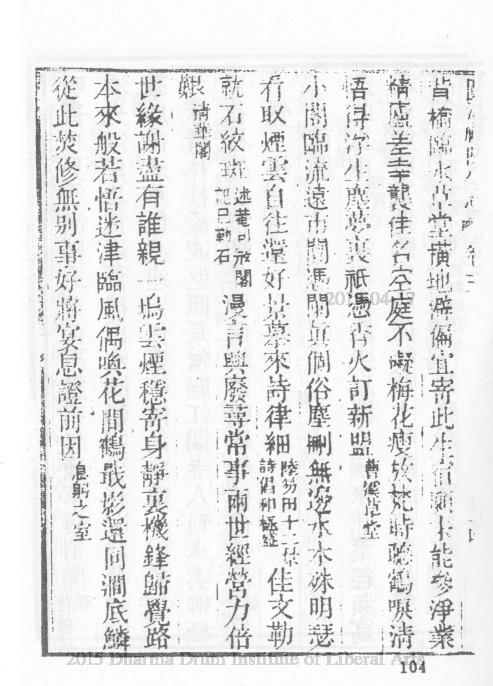 背橋臨水草堂橫地避偏宜寄此生自顧未能參淨業
精廬差幸襲佳名空庭不礙梅花瘦放梵時聽鶴唳清
悟得浮生塵夢裏祇憑香火訂新盟
小閣臨流遠市闤憑闌真個俗塵刪無邊水木殊明瑟
看取煙雲自往還好景摹來詩律細 詩倡和極盛 佳文勒
就石紋斑 述菴司寇閣記已勒石 漫言興廢尋常事兩世經營力倍
艱 清華閣
世緣謝盡有誰親一塢雲煙穩寄身靜裏機鋒歸覺路
本來般若悟迷津臨風偶喚花間鶴戲影還同澗底鱗
從此焚修無別事好將宴息證前因 息躬之室
2015 Dharma Drum Institute of Liberal Arts
104